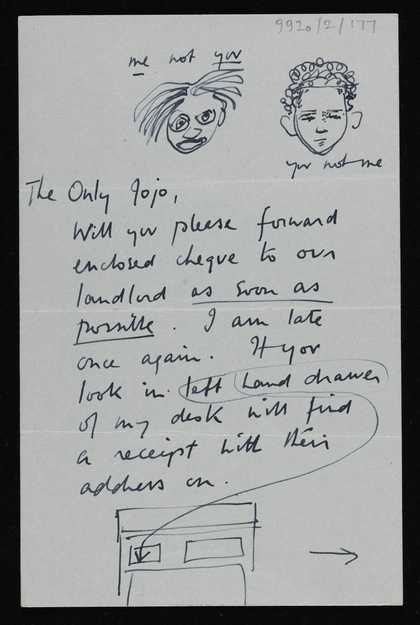 9920/2/177
me not you
you not me
The Only Jojo,
Will you please forward
enclosed cheque to our
landlord as soon as
possible. I am late
once again. If you
look in left hand drawer
of my desk will find
a receipt with their
address on.